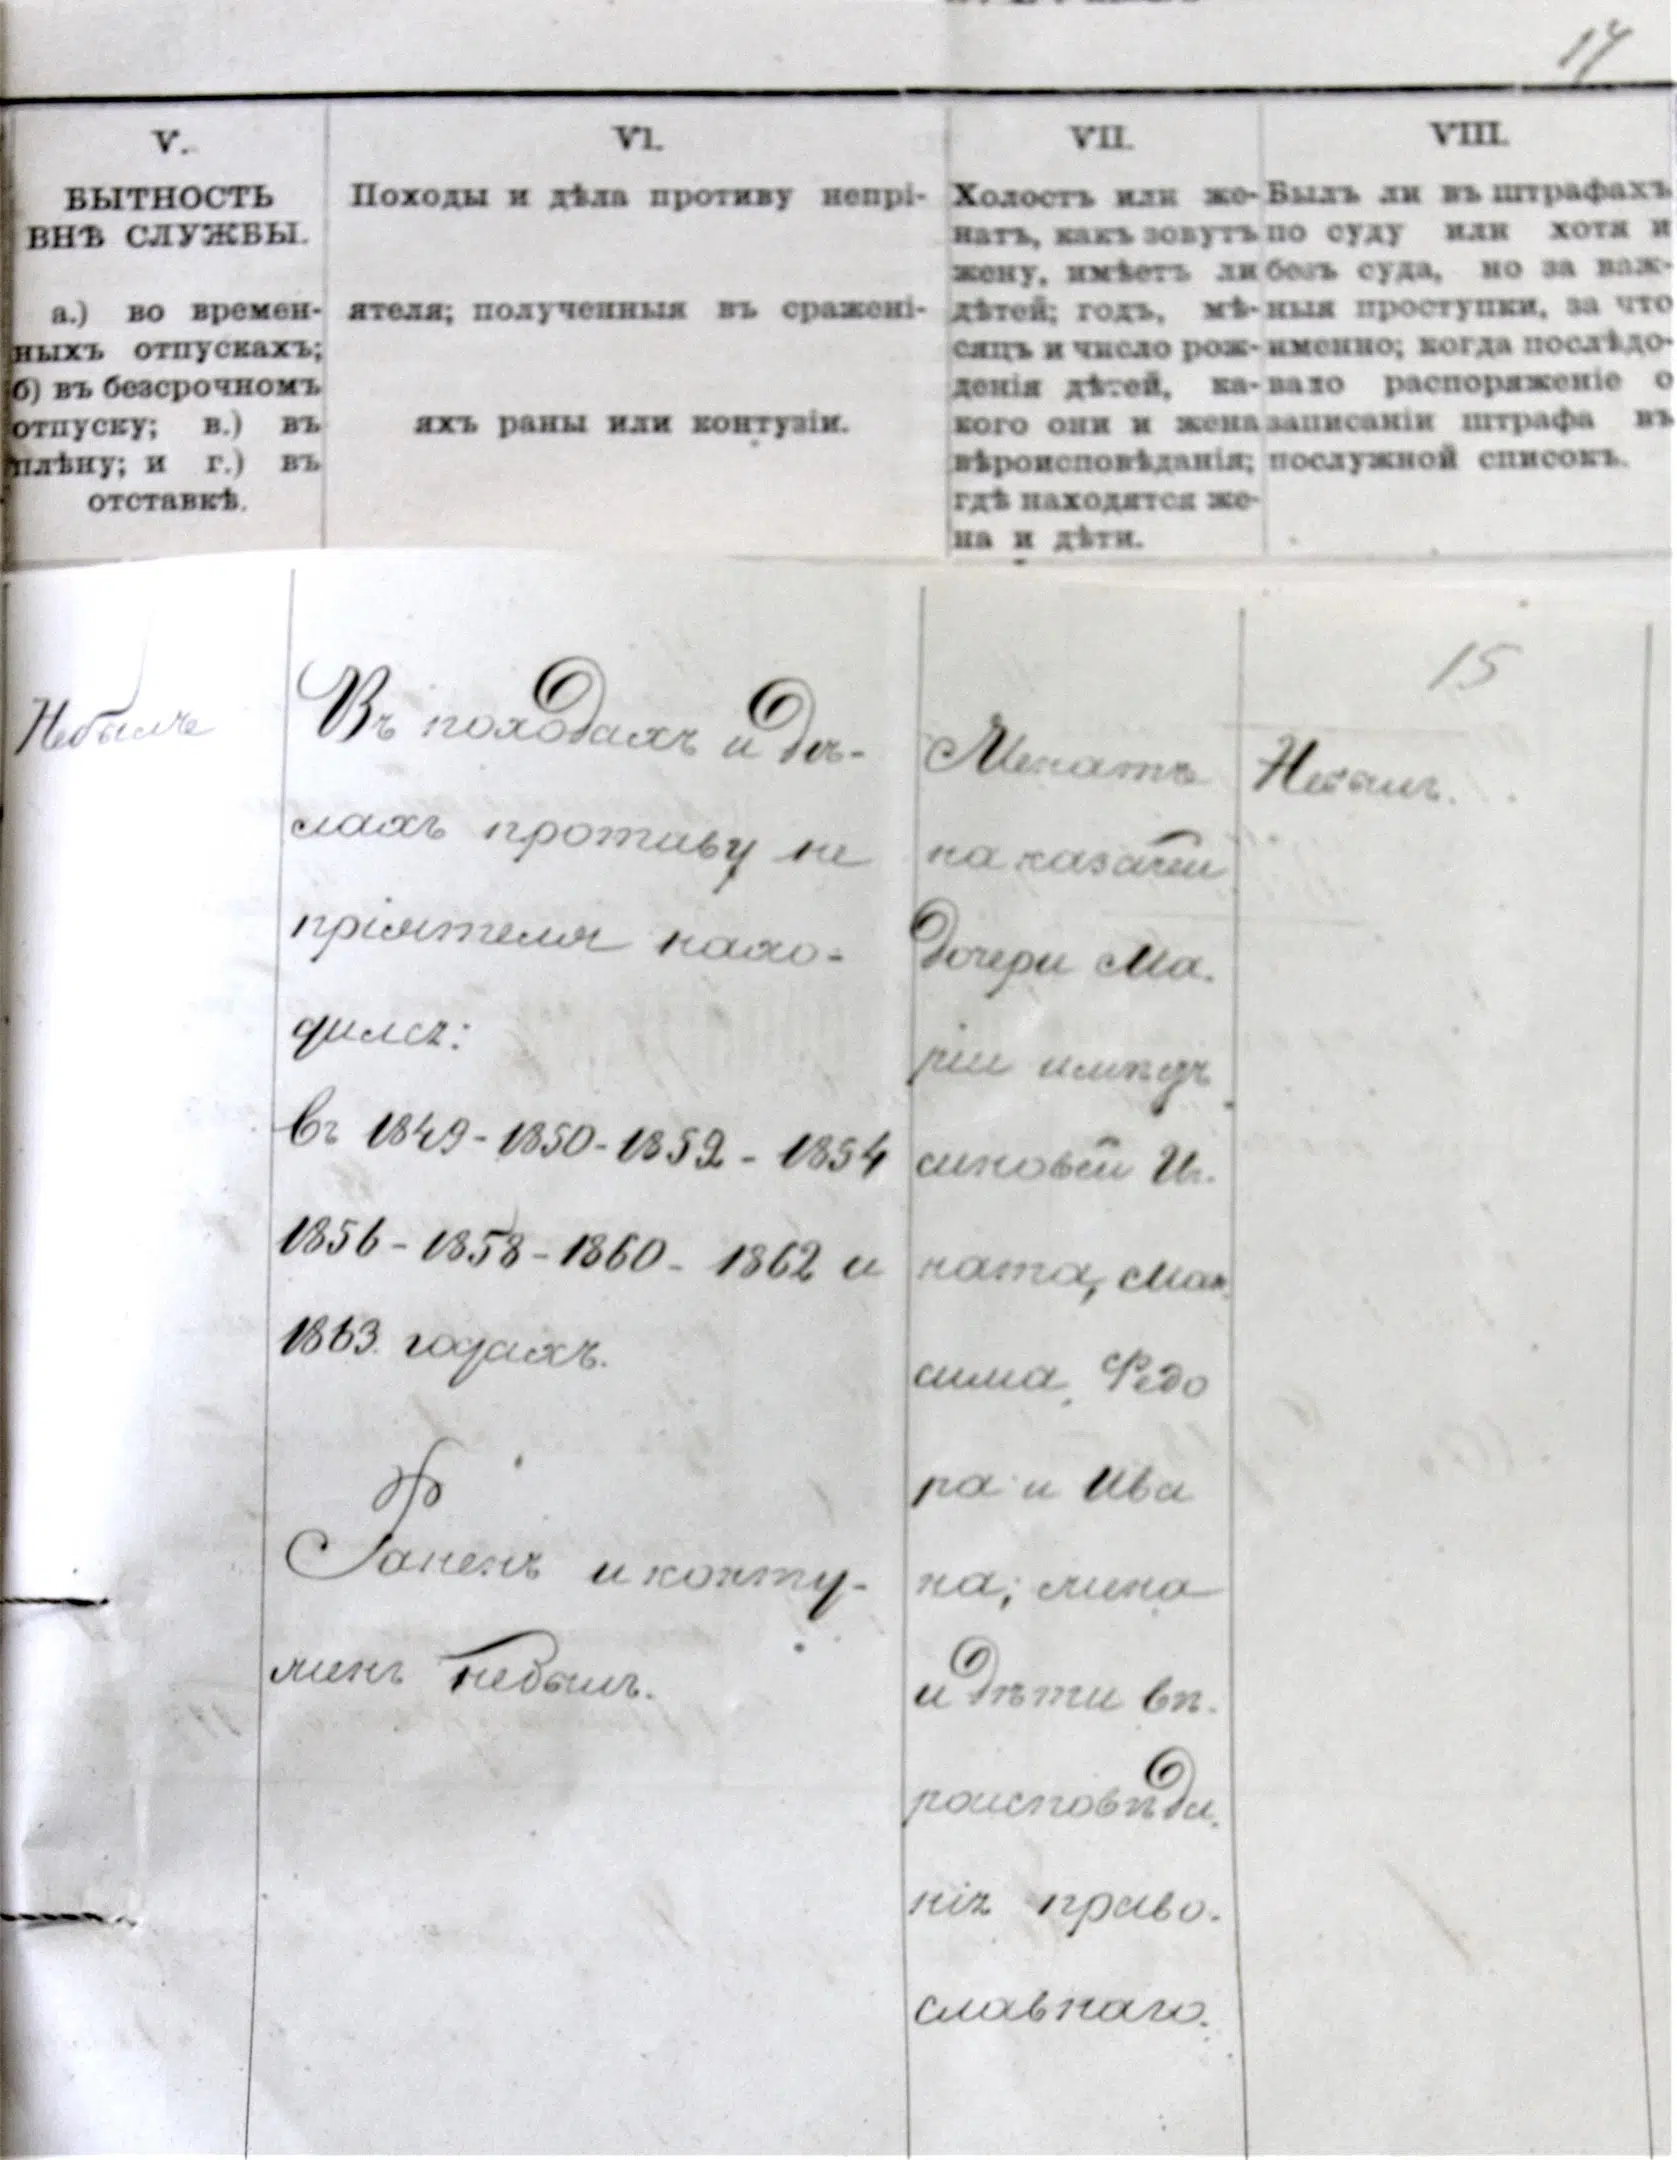 17
V.
БЫТНОСТЬ
ВНѢ СЛУЖБЫ.
а.) во времен-
ныхъ отпускахъ;
б) въ безсрочномъ
отпуску; в.) въ
плѣну; и г.) въ
отставкѣ.
VI.
Походы и дѣла противу непрі-
ятеля; полученныя въ сражені-
яхъ раны или контузіи.
VII.
Холостъ или же-
натъ, какъ зовутъ
жену, имѣетъ ли
дѣтей; годъ, мѣ-
сяцъ и число рож-
денія дѣтей, ка-
кого они и жена
вѣроисповѣданія;
гдѣ находятся же-
на и дѣти.
VIII.
Былъ ли въ штрафахъ
по суду или хотя и
безъ суда, но за важ-
ныя проступки, за что
именно; когда послѣдо-
вало распоряженіе о
записаніи штрафа въ
послужной списокъ.
Небылъ
Въ походахъ и дѣ-
лахъ противу не
пріятеля нахо-
дился:
въ 1849-1850-1852-1854
1856-1858-1860-1862 и
1863 годахъ.
Раненъ и конту-
женъ небылъ.
Женатъ
на казачей
дочери Ма-
ріи имѣетъ
сыновей Иг-
ната, Мак
сима, Федо
ра и Ива
на; жена
и дѣти вѣ-
роисповѣда-
нія право-
славнаго.
15
Небылъ.